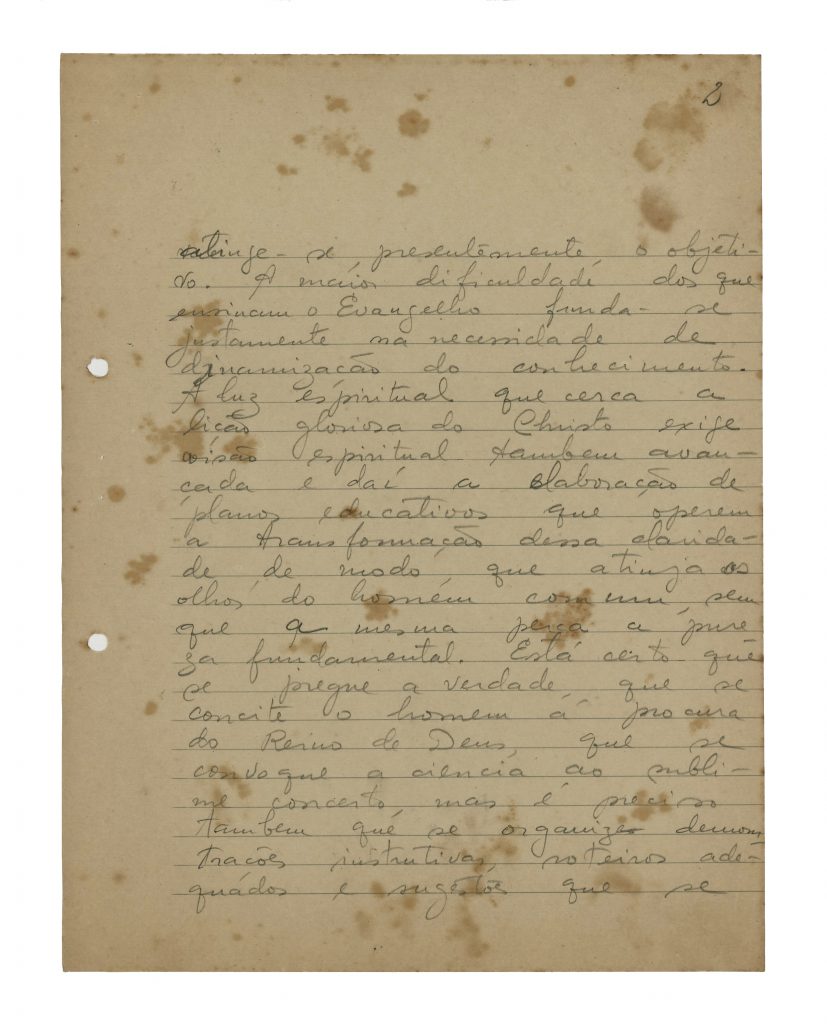 2
atinge-se, presentemente, o objeti-
vo. A maior dificuldade dos que
ensinam o Evangelho funda-se
justamente na necessidade de
dinamização do conhecimento.
A luz espiritual que cerca a
lição gloriosa do Christo exige
visão espiritual tambem avan-
çada e daí a elaboração de
planos educativos que operem
a transformação dessa clarida-
de, de modo que atinja os
olhos do homem comum, sem
que a mesma perca a pure
za fundamental. Está certo que
se pregue a verdade, que se
concite o homem á procura
do Reino de Deus, que se
convoque a ciencia ao subli-
me concerto, mas é preciso
tambem que se organize demons
trações instrutivas, roteiros ade-
quádos e sugestões que se